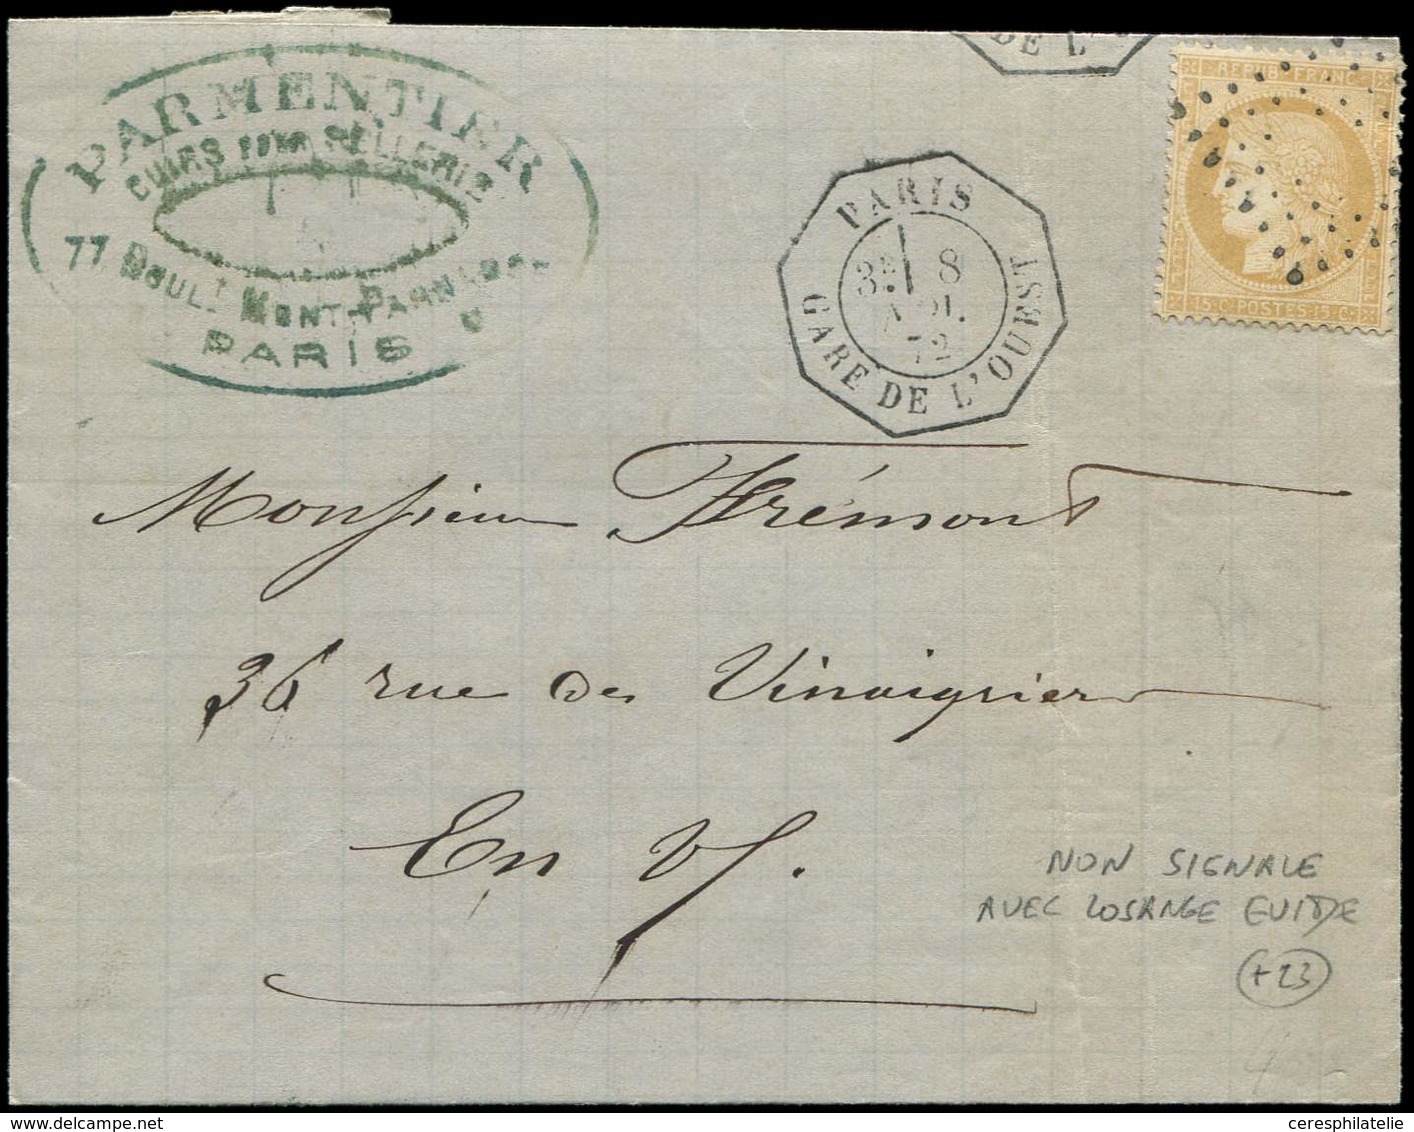 PARMENTIER
CUIRS POUR SELLERIE
77 BOUL.T MONT-PARNASSE
PARIS
DE L'
PARIS
3E 8
72
GARE DE L'OUEST
REPUB. FRANC.
15 C. POSTES 15 C.
Monsieur Frémont
36 rue des Vinaigriers
En V/.
NON SIGNALE
AVEC LOSANGE EVIDE
+23
ceresphilatelie